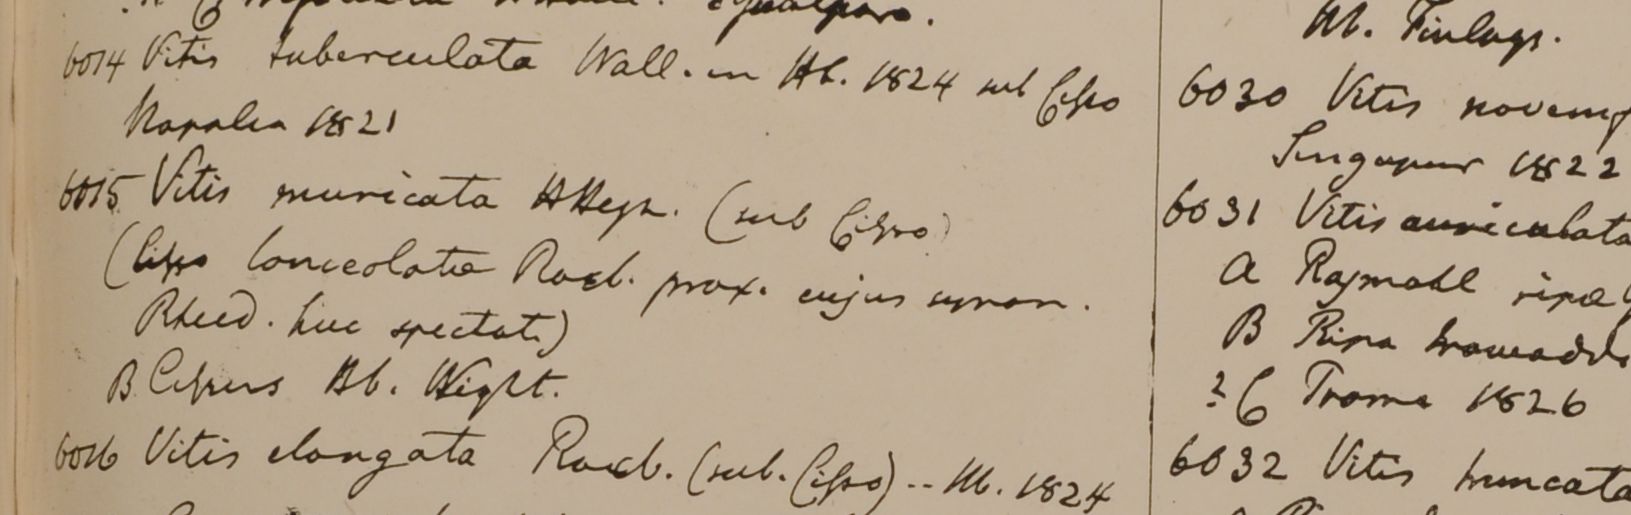 6014 Vitis tuberculata Wall. in Hb. 1824 sub Cisso
Napalia 1821
6015 Vitis muricata HHeyn. (sub Cisso)
(Cisso lanceolatae Roxb. prox. cujus synon.
Rheed. huc spectat)
B Cissus Hb. Wight.
6016 Vitis elongata Roxb. (sub. Cisso) -- Hb. 1824
Hb. Finlays.
6030 Vitis
Singapur 1822
6031 Vitis auriculata
a Rajmahl ripa
B Ripa
? C Trome 1826
6032 Vitis truncata